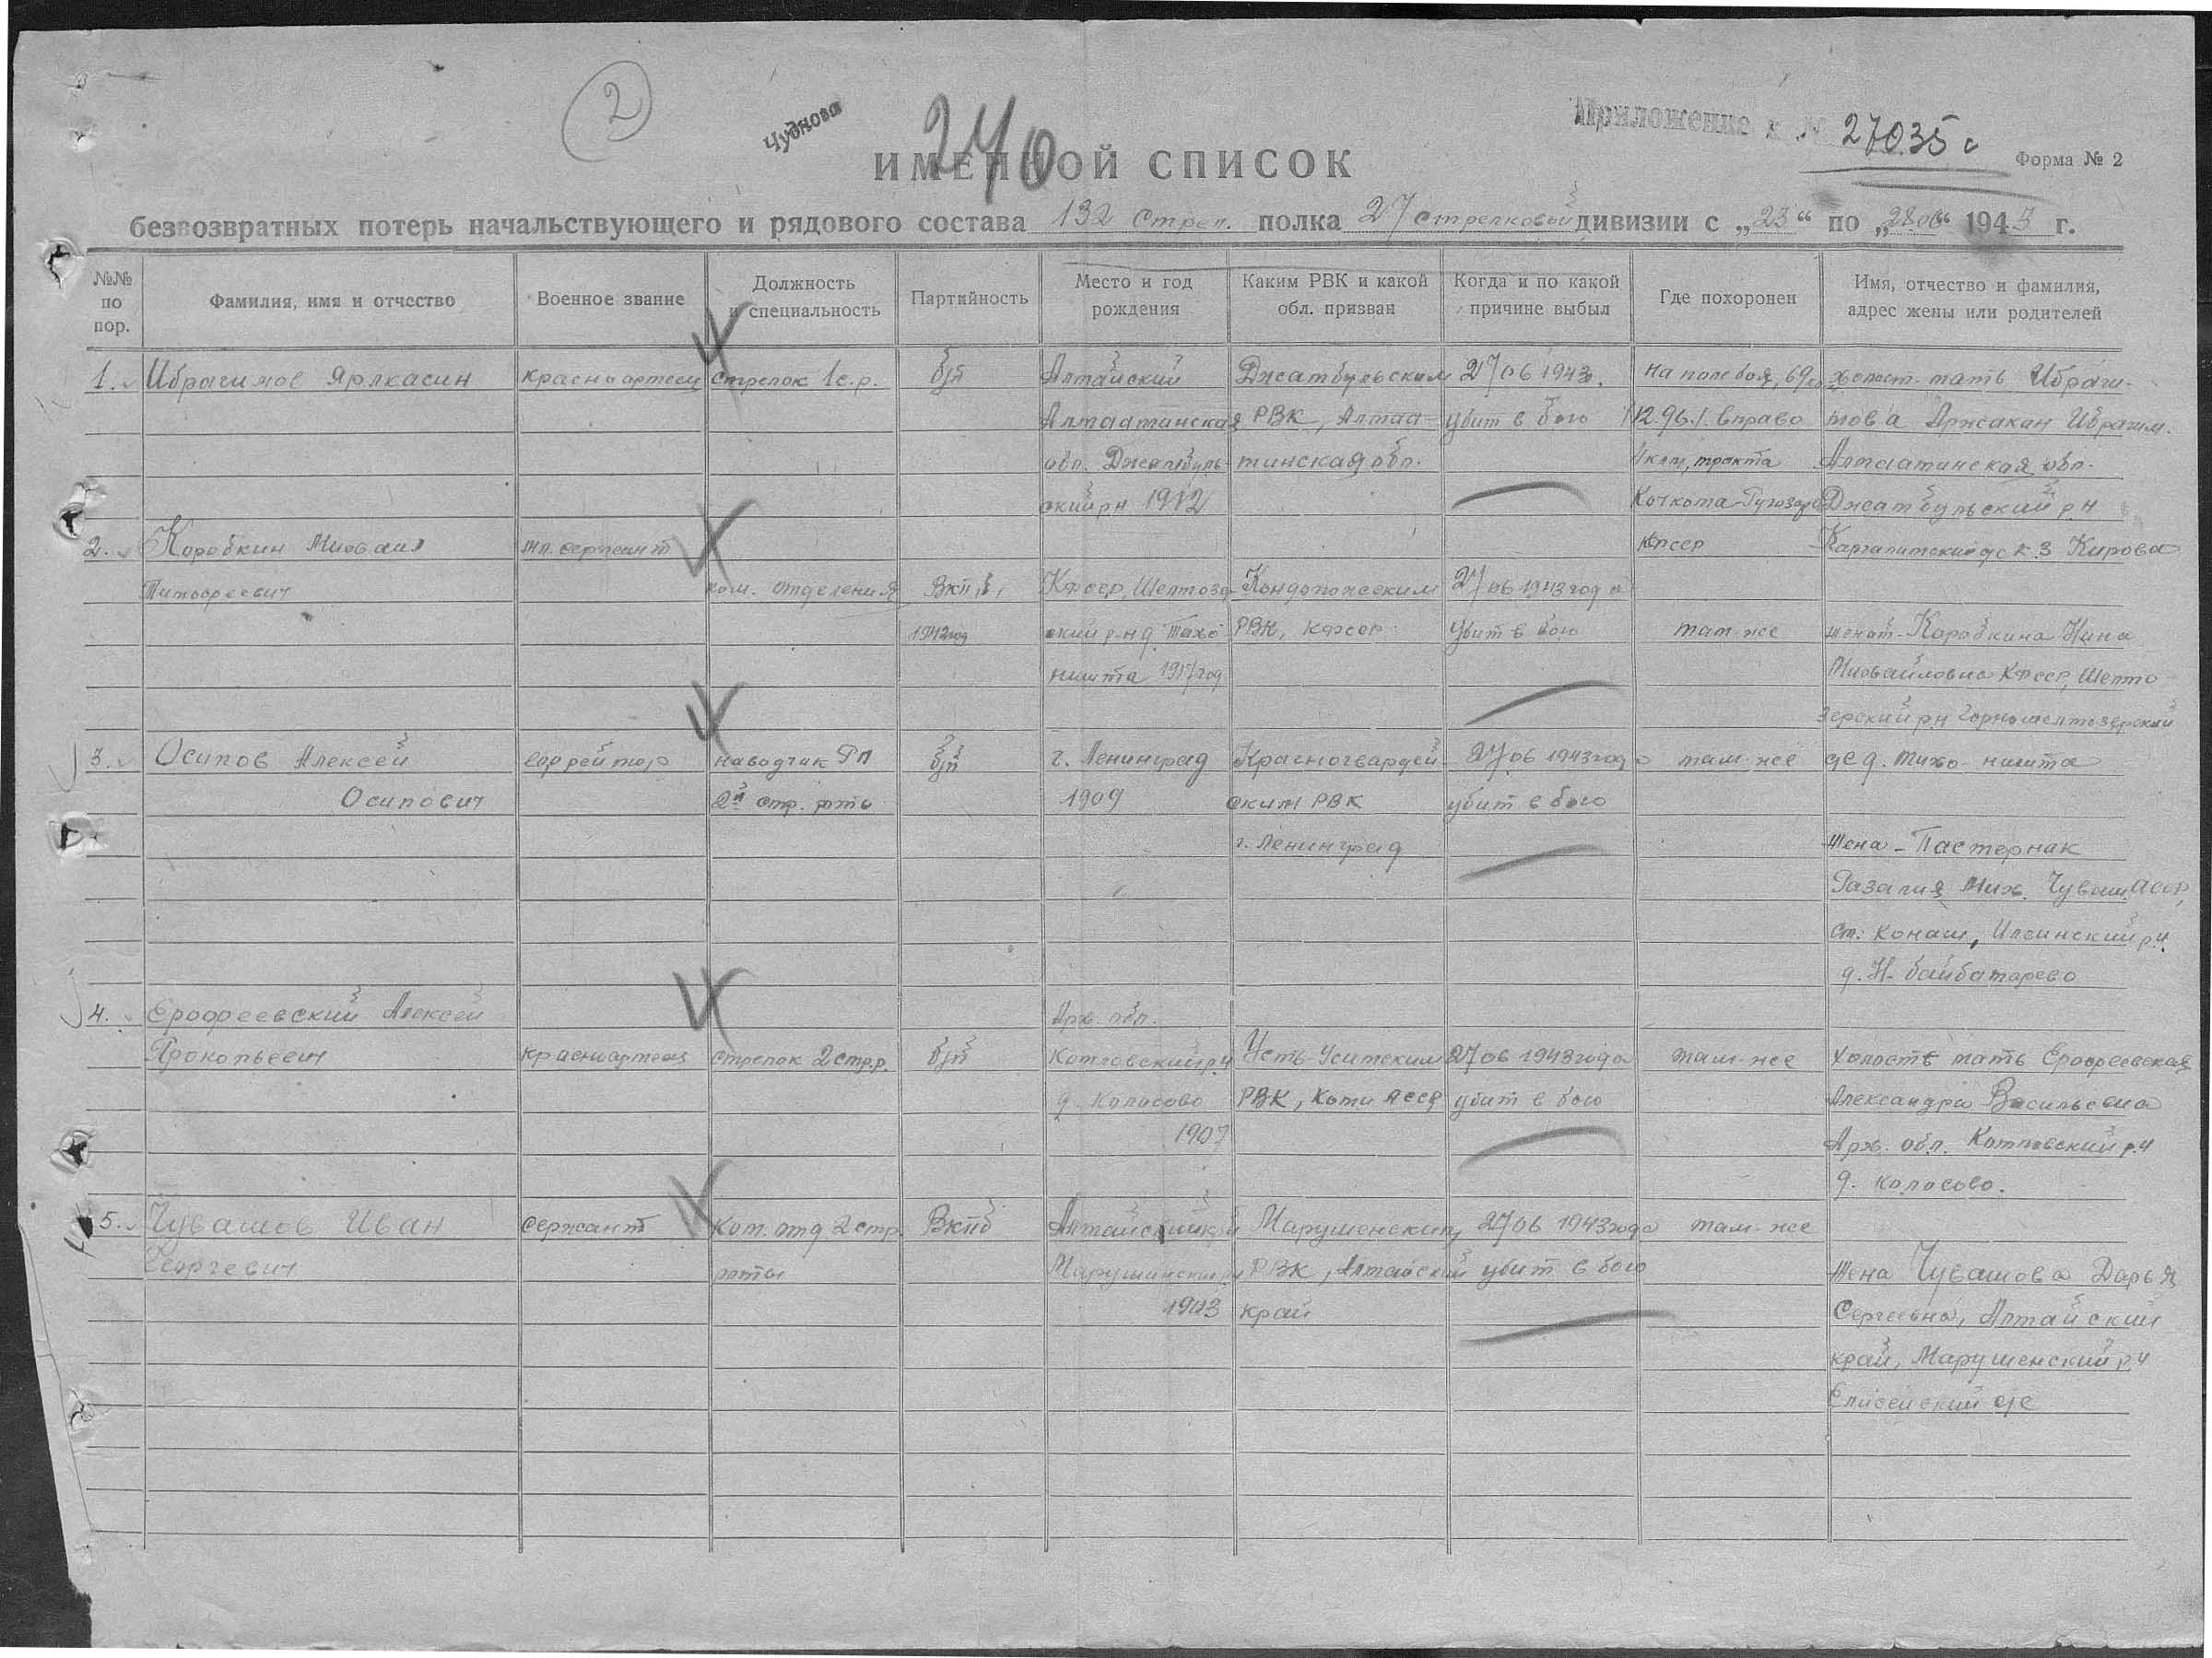 2
Чуднова
240
Приложение к № 27035 с
Форма № 2
ИМЕННОЙ СПИСОК
безвозвратных потерь начальствующего и рядового состава 132 Стрел. полка 27 стрелковой дивизии с „23“ по „28.06“ 1943 г.
№№ по пор.
Фамилия, имя и отчество
Военное звание
Должность и специальность
Партийность
Место и год рождения
Каким РВК и какой обл. призван
Когда и по какой причине выбыл
Где похоронен
Имя, отчество и фамилия, адрес жены или родителей
1. Ибрагимов Ярлкасин красноармеец стрелок 1с.р. б/п Алтайский Джамбульским 27 06 1943. на поле боя, холост. мать Ибраги-
Алмаатинская РВК, Алмаа- убит в бою 12.96./. вправо мова Аржакан Ибрагим.
обл. Джамбуль- тинская обл. 1 клм, тракта Алмаатинская обл.
ский рн 1912 Кочкома-Ругозеро Джамбульский р.н
2. Коробкин Михаил мл. сержант Кфсср с/с к.з Кирова
Тимофеевич ком. отделения ВКП/б/ Кфсср, Шелтозе- Кондопожским 27 06 1943 года
1942год ский р-н д. Тихо РВК, Кфсср убит в бою там-же женат-Коробкина Нина
ништа 1917год Михайловна Кфсср, Шелто
зерский р.н Горношелтозерский
3. Осипов Алексей ефрейтор наводчик РП б/п г. Ленинград Красногвардей- 27 06 1943год там-же с/с д. Тихо-ништа
Осипович 2й стр. рты 1909 ским РВК убит в бою
г. Ленинград жена-Пастернак
Разалия Мих. Чуваш. АССР,
ст. Конаш, р.н.
д. Н-байбатарево
4. Ерофеевский Алексей Арх. обл.
Прокопьевич красноармеец стрелок 2стр.р. б/п Котловский р.н Усть-Усинским 27 06 1943года там-же холост мать Ерофеевская
д. Колосово РВК, Коми АССР убит в бою Александра Васильевна
1907 Арх. обл. Котловский р.н
д. Колосово.
5. Чувашов Иван сержант Ком. отд 2стр. ВКПб Алтайский кр Марушенским 27 06 1943года там-же
Георгевич роты Марушинский рн РВК, Алтайский убит в бою жена Чувашова Дарья
1903 край Сергеевна, Алтайский
край, Марушенский р.н
Елисейский с/с